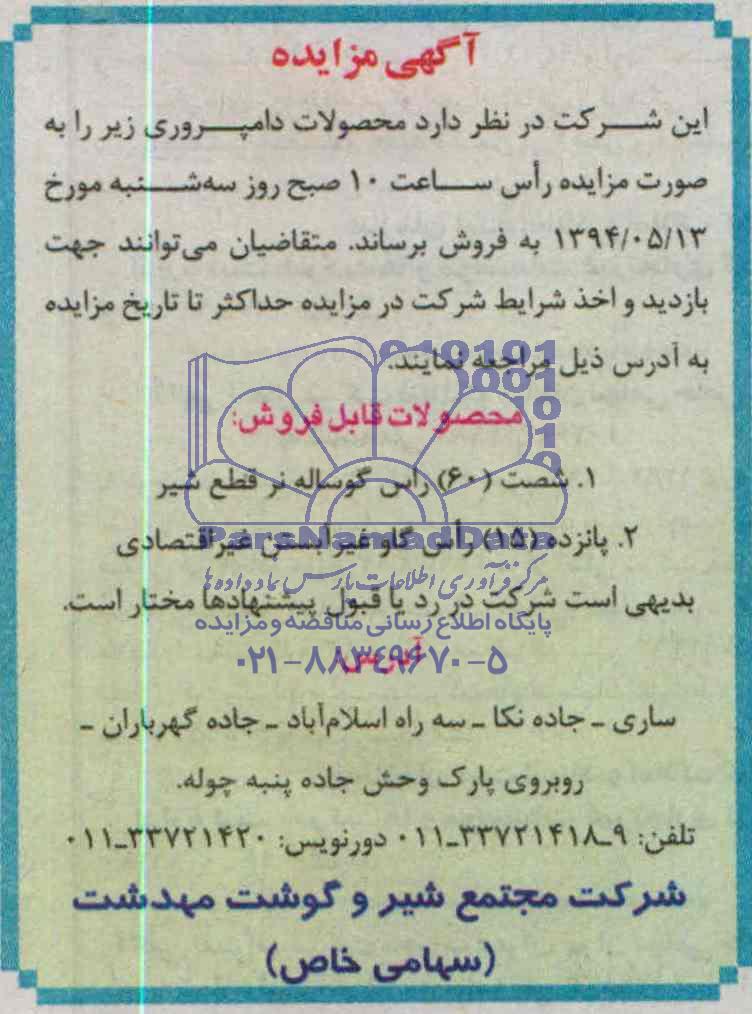 آگهی مزایده
این شرکت در نظر دارد محصولات دامپروری زیر را به
صورت مزایده رأس ساعت ۱۰ صبح روز سه‌شنبه مورخ
۱۳۹۴/۰۵/۱۳ به فروش برساند. متقاضیان می‌توانند جهت
بازدید و اخذ شرایط شرکت در مزایده حداکثر تا تاریخ مزایده
به آدرس ذیل مراجعه نمایند.
محصولات قابل فروش:
۱. شصت (۶۰) رأس گوساله نر قطع شیر
۲. پانزده (۱۵) رأس گاو غیرآبستن غیراقتصادی
ParsNamadData
مرکز فرآوری اطلاعات پارس نماد داده‌ها
بدیهی است شرکت در رد یا قبول پیشنهادها مختار است.
پایگاه اطلاع رسانی مناقصه و مزایده
آدرس:
۰۲۱-۸۸۳۴۹۶۷۰-۵
ساری ـ جاده نکا ـ سه راه اسلام‌آباد ـ جاده گهرباران ـ
روبروی پارک وحش جاده پنبه چوله.
تلفن: ۹ـ۳۳۷۲۱۴۱۸ـ۰۱۱ دورنویس: ۳۳۷۲۱۴۲۰ـ۰۱۱
شرکت مجتمع شیر و گوشت مهدشت
(سهامی خاص)